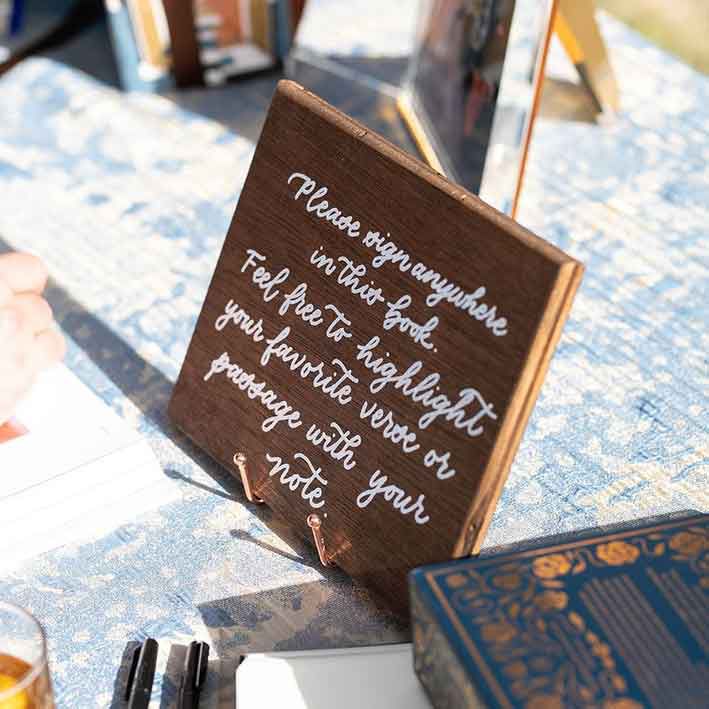 Please sign anywhere
in this book.
Feel free to highlight
your favorite verse or
passage with your
note.